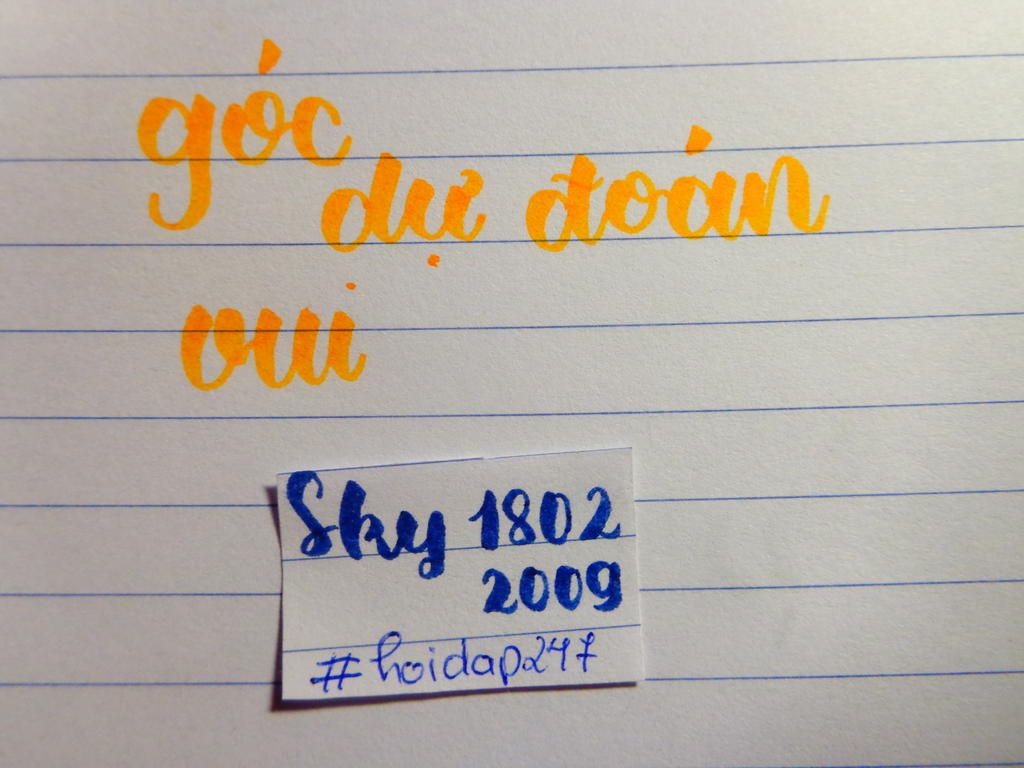 góc
dự đoán
vui
Sky 1802
2009
#hoidap247